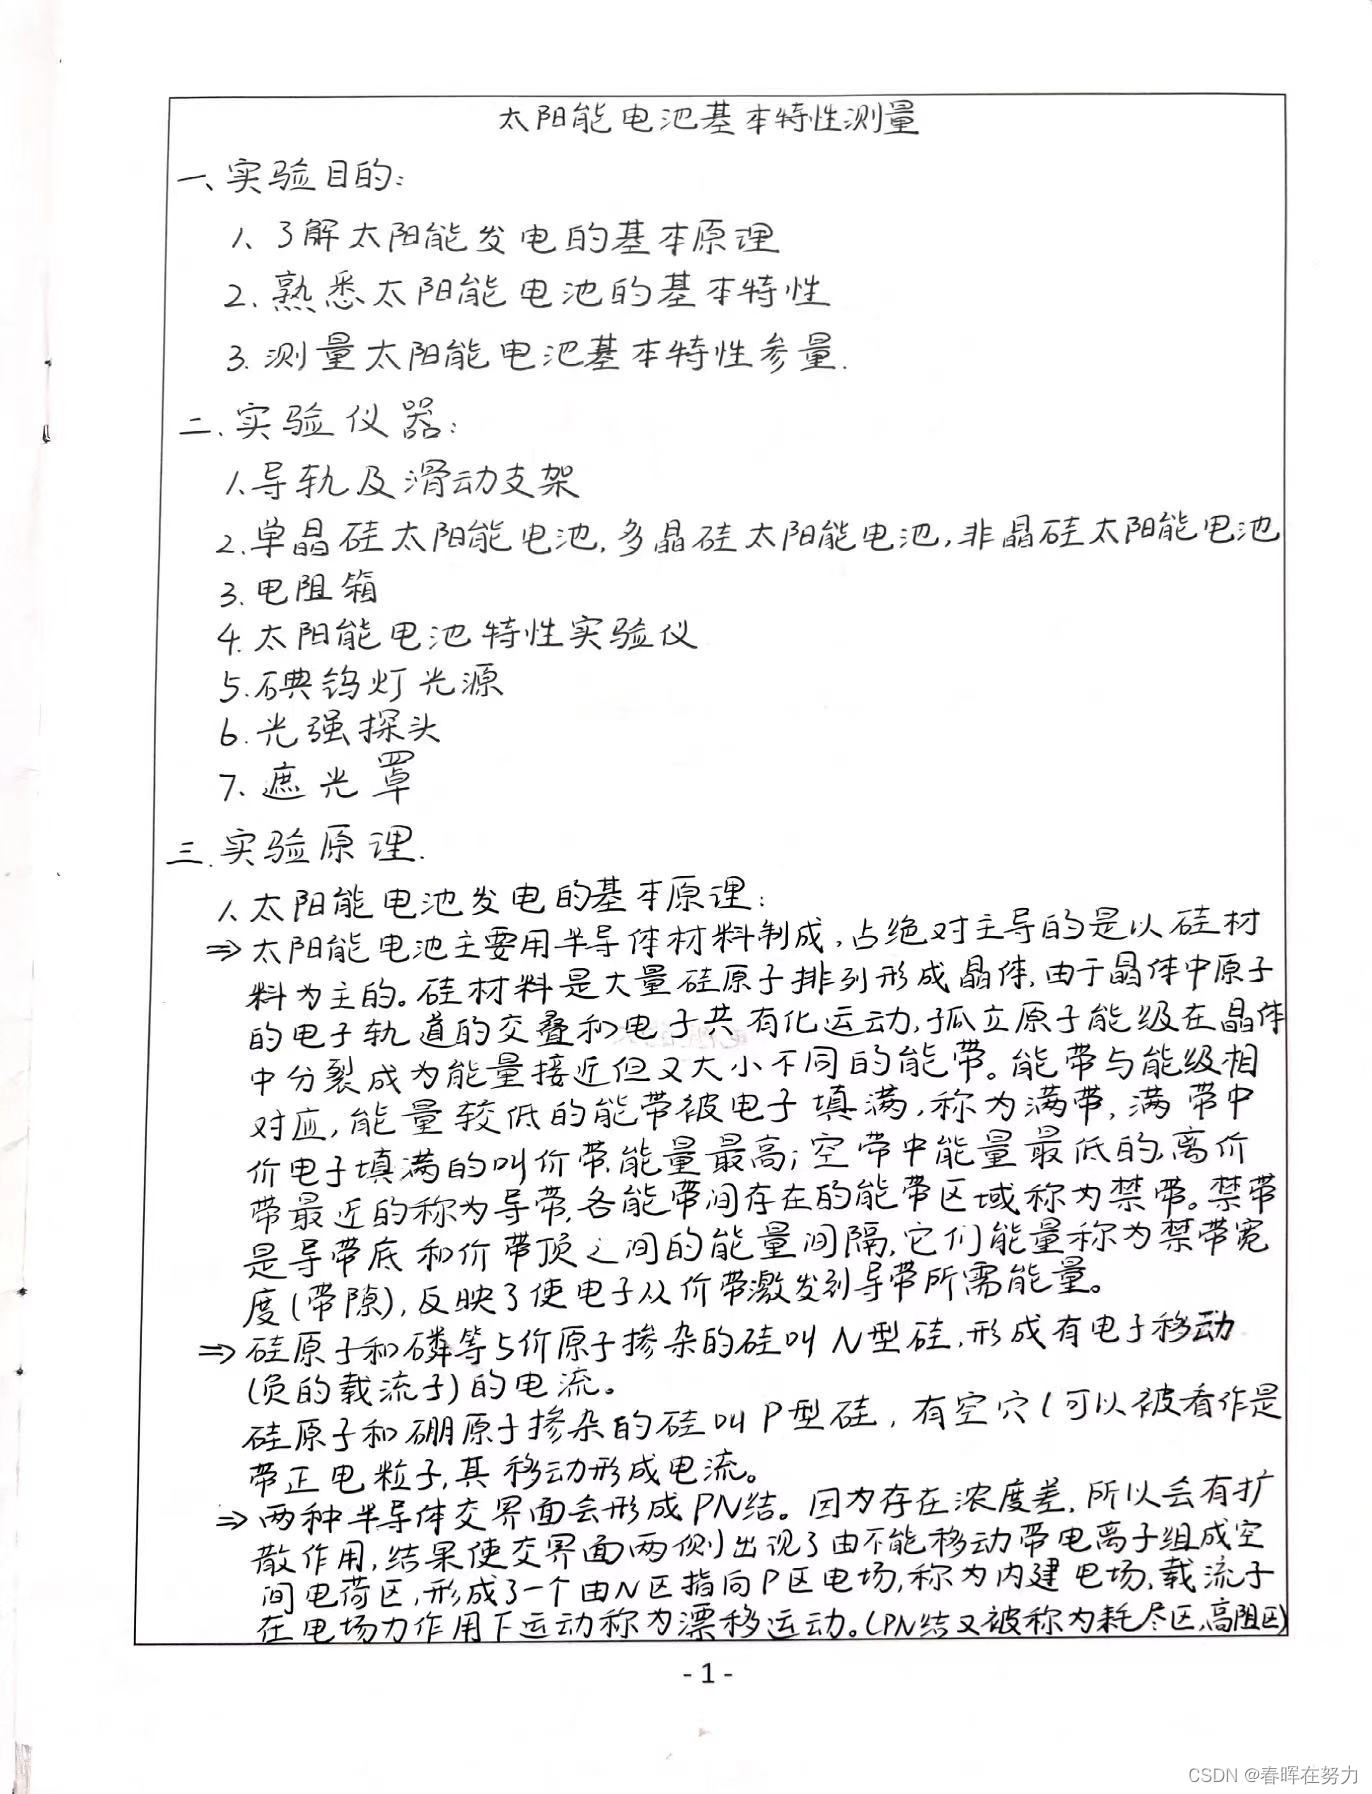 太阳能电池基本特性测量
一、实验目的:
1、了解太阳能发电的基本原理
2.熟悉太阳能电池的基本特性
3.测量太阳能电池基本特性参量.
二.实验仪器:
1.导轨及滑动支架
2.单晶硅太阳能电池,多晶硅太阳能电池,非晶硅太阳能电池
3.电阻箱
4.太阳能电池特性实验仪
5.碘钨灯光源
6.光强探头
7.遮光罩
三.实验原理.
1.太阳能电池发电的基本原理:
⇒太阳能电池主要用半导体材料制成,占绝对主导的是以硅材
料为主的。硅材料是大量硅原子排列形成晶体,由于晶体中原子
的电子轨道的交叠和电子共有化运动,孤立原子能级在晶体
中分裂成为能量接近但又大小不同的能带。能带与能级相
对应,能量较低的能带被电子填满,称为满带,满带中
价电子填满的叫价带,能量最高;空带中能量最低的,离价
带最近的称为导带,各能带间存在的能带区域称为禁带。禁带
是导带底和价带顶之间的能量间隔,它们能量称为禁带宽
度(带隙),反映了使电子从价带激发到导带所需能量。
⇒硅原子和磷等5价原子掺杂的硅叫N型硅,形成有电子移动
(负的载流子)的电流。
硅原子和硼原子掺杂的硅叫P型硅,有空穴(可以被看作是
带正电粒子,其移动形成电流。
⇒两种半导体交界面会形成PN结。因为存在浓度差,所以会有扩
散作用,结果使交界面两侧出现了由不能移动带电离子组成空
间电荷区,形成了一个由N区指向P区电场,称为内建电场,载流子
在电场力作用下运动称为漂移运动。(PN结又被称为耗尽区,高阻区)
- 1 -
CSDN @春晖在努力